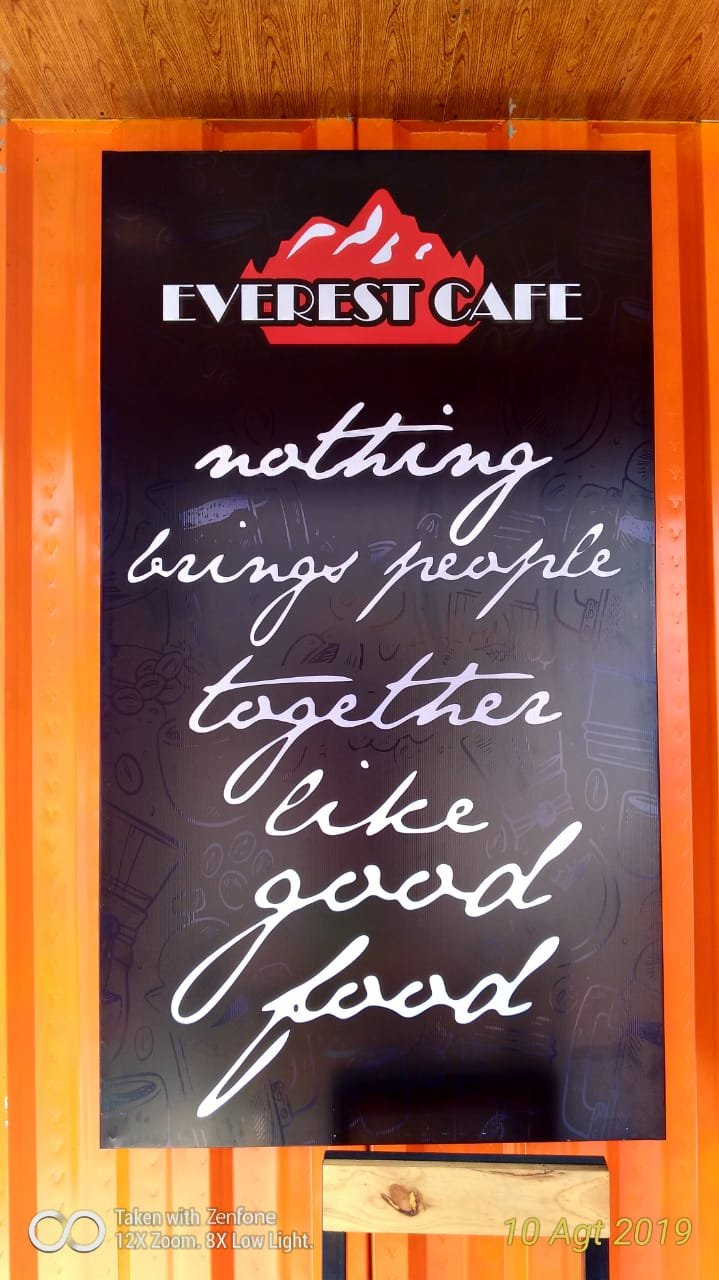 EVEREST CAFE
nothing
brings people
together
like
good
food
Taken with Zenfone
12X Zoom. 8X Low Light.
10 Agt 2019